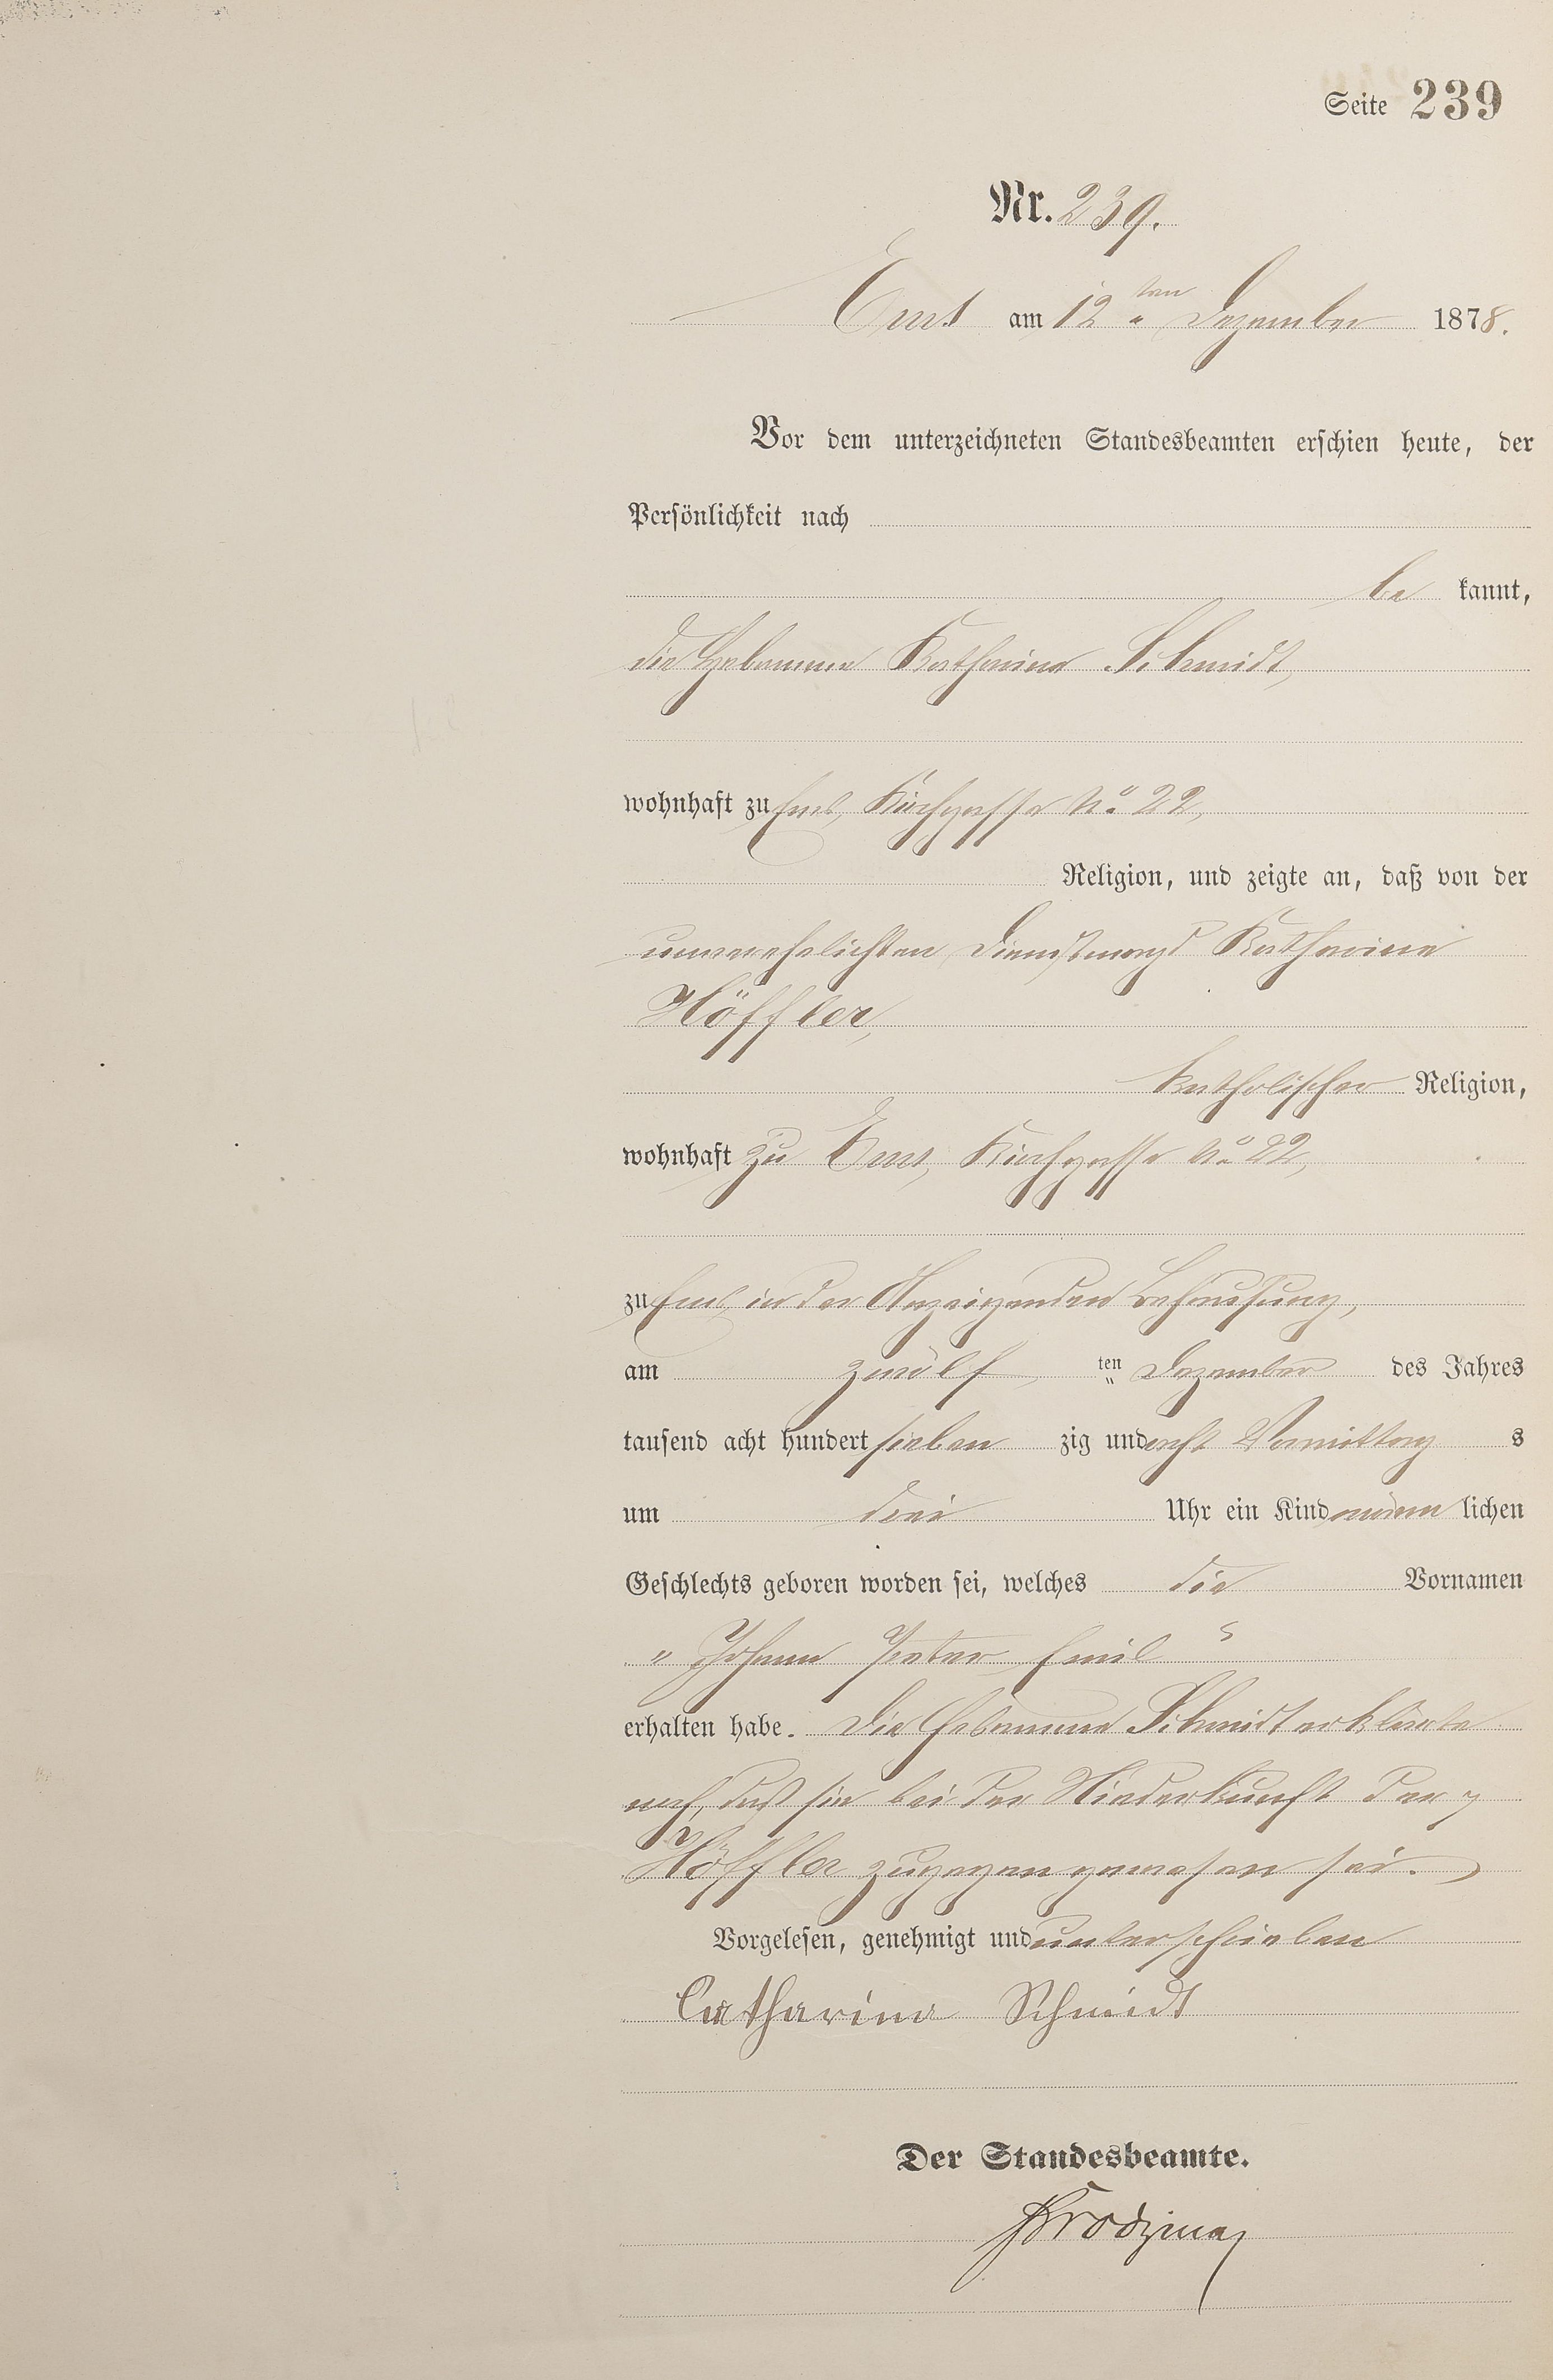 Seite 239
Nr. 239.
Ems am 12ten Dezember 1878.
Vor dem unterzeichneten Standesbeamten erschien heute, der
Persönlichkeit nach
be kannt,
die Hebamme Katharina Schmidt,
wohnhaft zu Ems, Kirchgasse No 22,
Religion, und zeigte an, daß von der
unverehelichten Dienstmagd Katharina
Höffler,
katholischer Religion,
wohnhaft zu Ems, Kirchgasse No 22,
zu Ems, in der Anzeigenden Behausung,
am zwölf ten Dezember des Jahres
tausend acht hundert sieben zig und acht Vormittag s
um drei Uhr ein Kind männ lichen
Geschlechts geboren worden sei, welches die Vornamen
"Johann Peter Emil"
erhalten habe. Die Hebamme Schmidt erklärte
noch, daß sie bei der Niederkunft der
Höffler zugegen gewesen sei.
Vorgelesen, genehmigt und unterschrieben
Catharina Schmidt
Der Standesbeamte.